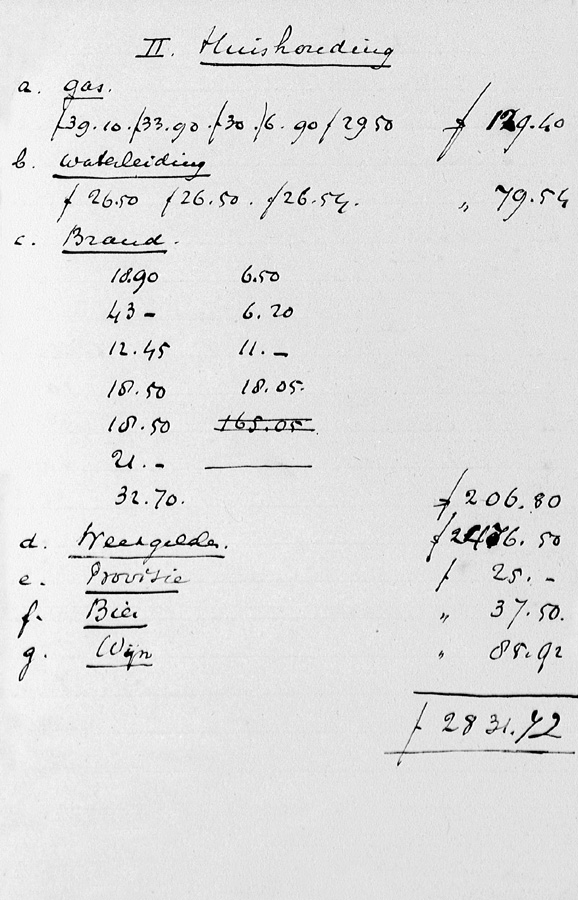 II. Huishouding
a. gas.
f39.10. f33.90. f30. f6.90 f29.50 f 129.40
b. Waterleiding
f 26.50 f26.50. f26.54. „ 79.54
c. Brand.
18.90 6.50
43 – 6.20
12.45 11. –
18.50 18.05.
18.50 165.05
21. –
32.70. f 206.80
d. Weekgelden.
e. Provisie f 25. –
f. Bier „ 37.50.
g. Wijn „ 85.92
f 2831.72